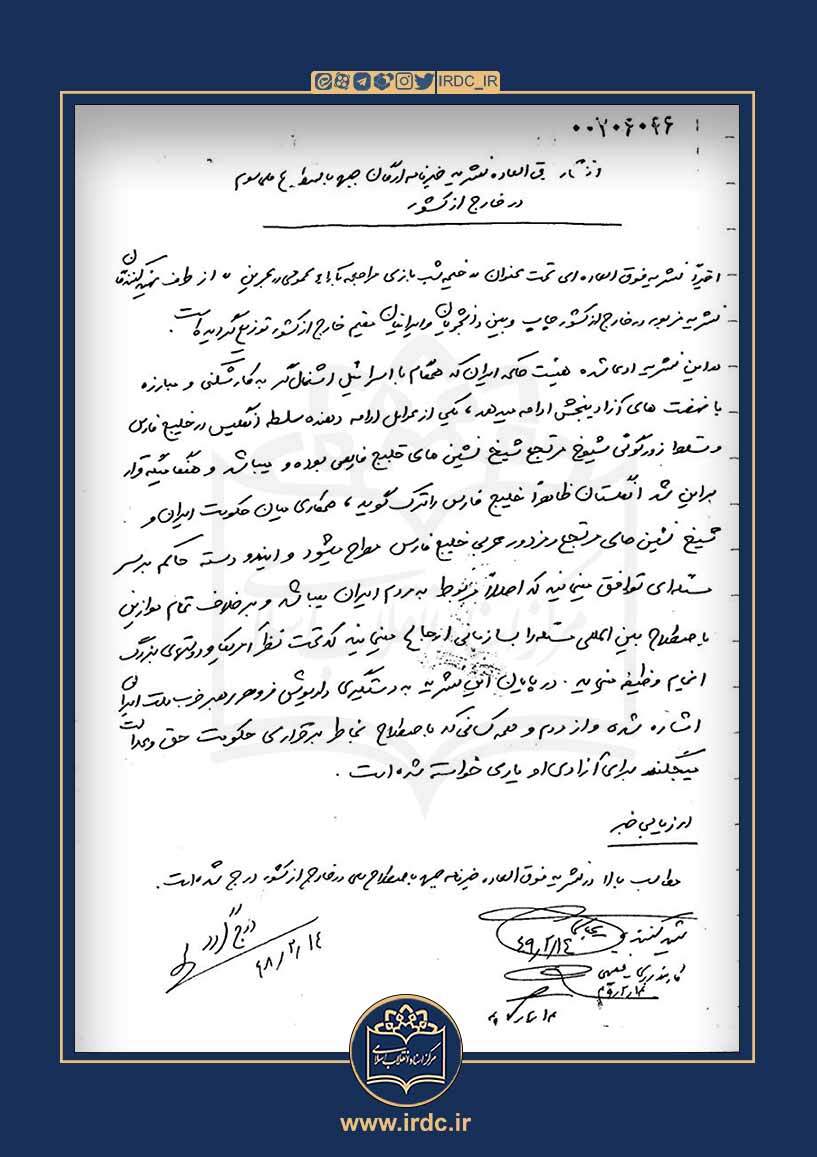 IRDC_IR
۰۰۲۰۶۰۴۶
انتشار فوق العاده نشریه خبرنامه ارگان جبهه باصطلاح ملی سوم
در خارج از کشور
اخیراً نشریه فوق العاده ای تحت عنوان « خیمه شب بازی مراجعه بآراء عمومی در بحرین » از طرف تهیه کنندگان
نشریه مزبور در خارج از کشور چاپ و بین دانشجویان و ایرانیان مقیم خارج از کشور توزیع گردیده است.
در این نشریه ادعا شده هیئت حاکمه ایران که همگام با اسرائیل اشغال گر به کارشکنی و مبارزه
با نهضت های آزادیبخش ادامه میدهد، یکی از عوامل ادامه دهنده سلطه انگلیس در خلیج فارس
و تسلط و زورگوئی شیوخ مرتجع شیخ نشین های خلیج فارس بوده و میباشد و هنگامیکه قرار
بر این شد انگلستان ظاهراً خلیج فارس را ترک گوید، همکاری میان حکومت ایران و
شیخ نشین های مرتجع و مزدور عربی خلیج فارس مطرح میشود و ایندو دسته حاکم بر سر
مسئله ای توافق مینمایند که اصلاً مربوط به مردم ایران میباشد و بر خلاف تمام موازین
باصطلاح بین المللی مسئله را بسازمانی ارجاع مینمایند که تحت نظر آمریکا و دولتهای بزرگ
انجام وظیفه مینماید. در پایان این نشریه به دستگیری داریوش فروهر رهبر حزب ملت ایران
اشاره شده و از مردم و همه کسانی که باصطلاح بخاطر برقراری حکومت حق و عدالت
میجنگند برای آزادی او یاری خواسته شده است.
ارزیابی خبر
مطالب بالا در نشریه فوق العاده خبرنامه جبهه باصطلاح ملی در خارج از کشور درج شده است.
تهیه کننده
۴۹/۲/۱۴
۴۸/۲/۱۴
مرکز اسناد انقلاب اسلامی
www.irdc.ir